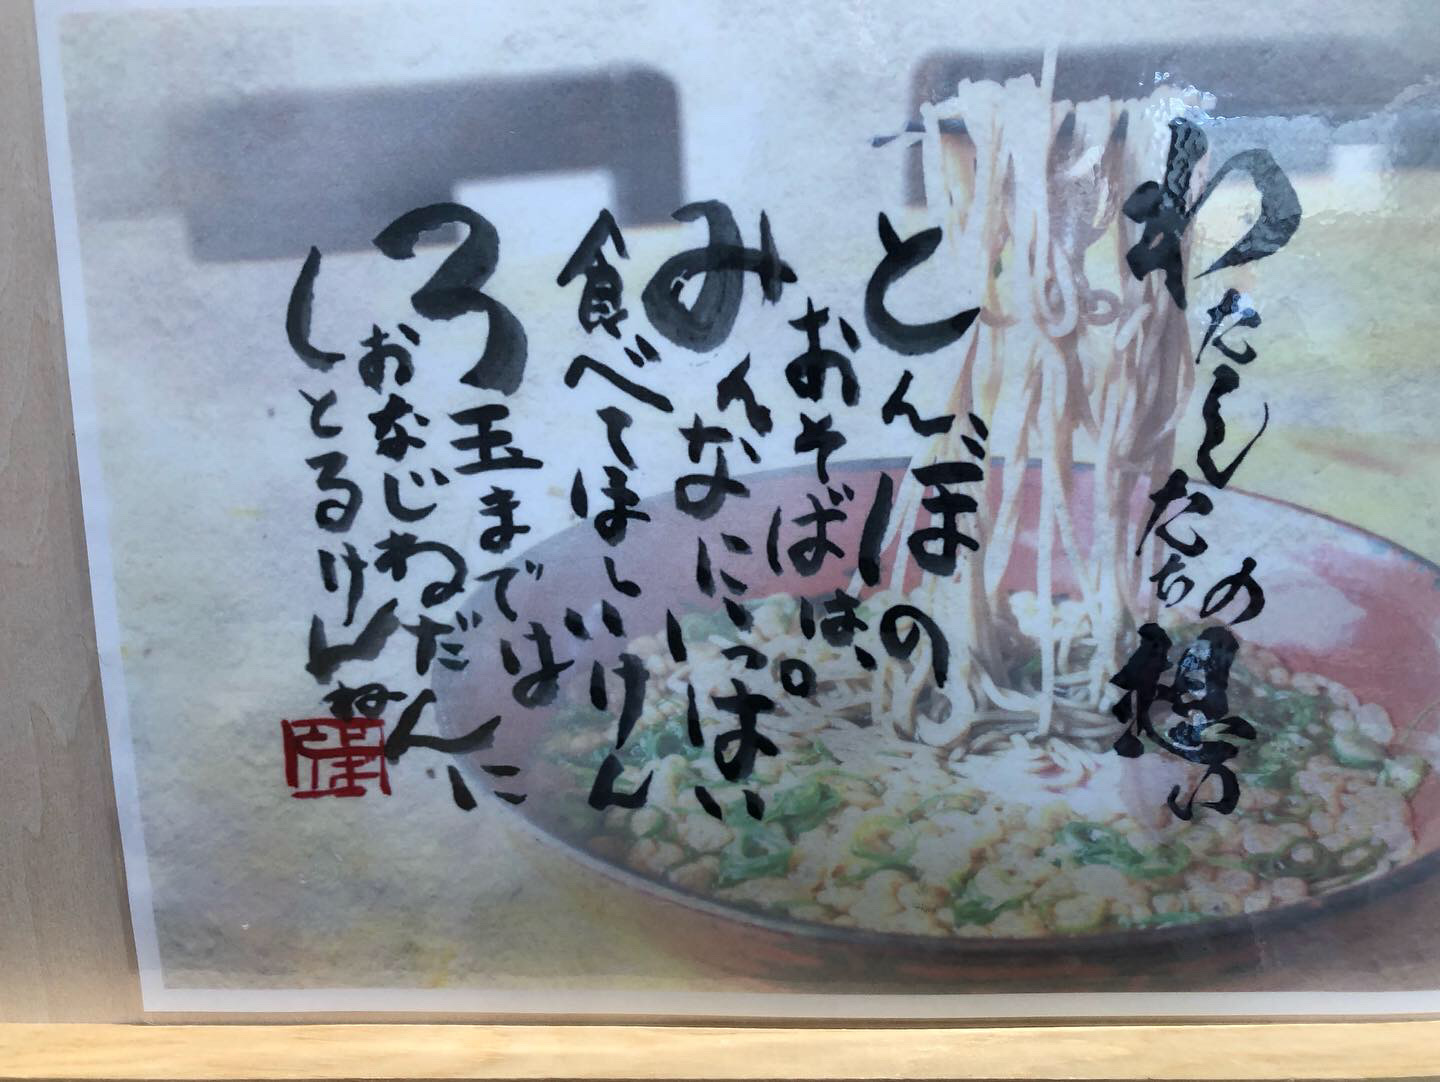 わたしたちの想い
とんぼの
おそばは、。
みんなにいっぱい
食べてほしいけん
3玉までは
おなじねだんに
しとるけんね